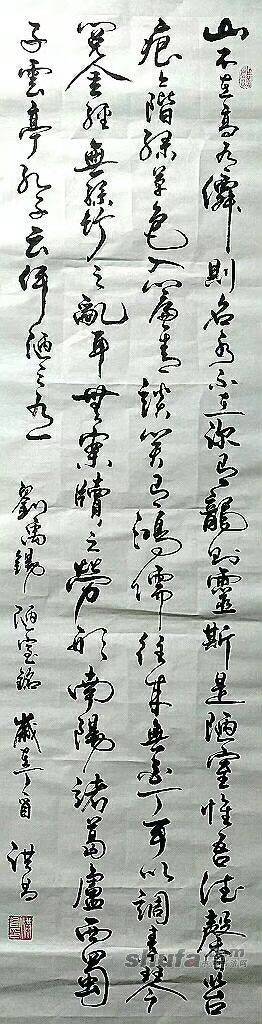 山不在高有僊則名水不在深有龍則靈斯是陋室惟吾德馨苔
痕上階綠草色入簾青談笑有鴻儒往来無白丁可以調素琴
閱金經無絲竹之亂耳無案牘之勞形南陽諸葛廬西蜀
子雲亭孔子云何陋之有 劉禹錫 陋室銘 歲在丁酉 洪昌
shufa